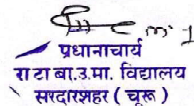 प्रधानाचार्य
रा टा बा.उ.मा. विद्यालय
सरदारशहर ( चूरू )